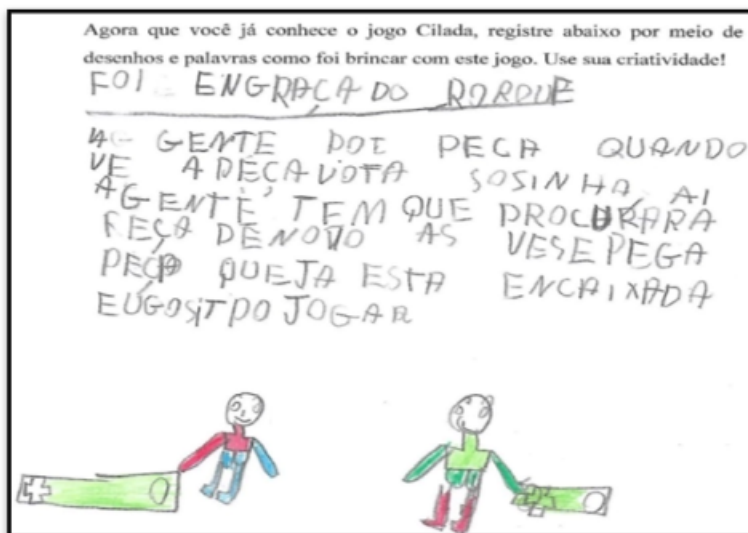 Agora que você já conhece o jogo Cilada, registre abaixo por meio de
desenhos e palavras como foi brincar com este jogo. Use sua criatividade!
FOI ENGRAÇADO PORQUE
A GENTE POE PEÇA QUANDO
VE A PEÇA VOTA SOSINHA, AI
A GENTE TEM QUE PROCURAR A
PEÇA DENOVO AS VESE PEGA
PEÇA QUE JA ESTA ENCAIXADA
EU DO JOGAR